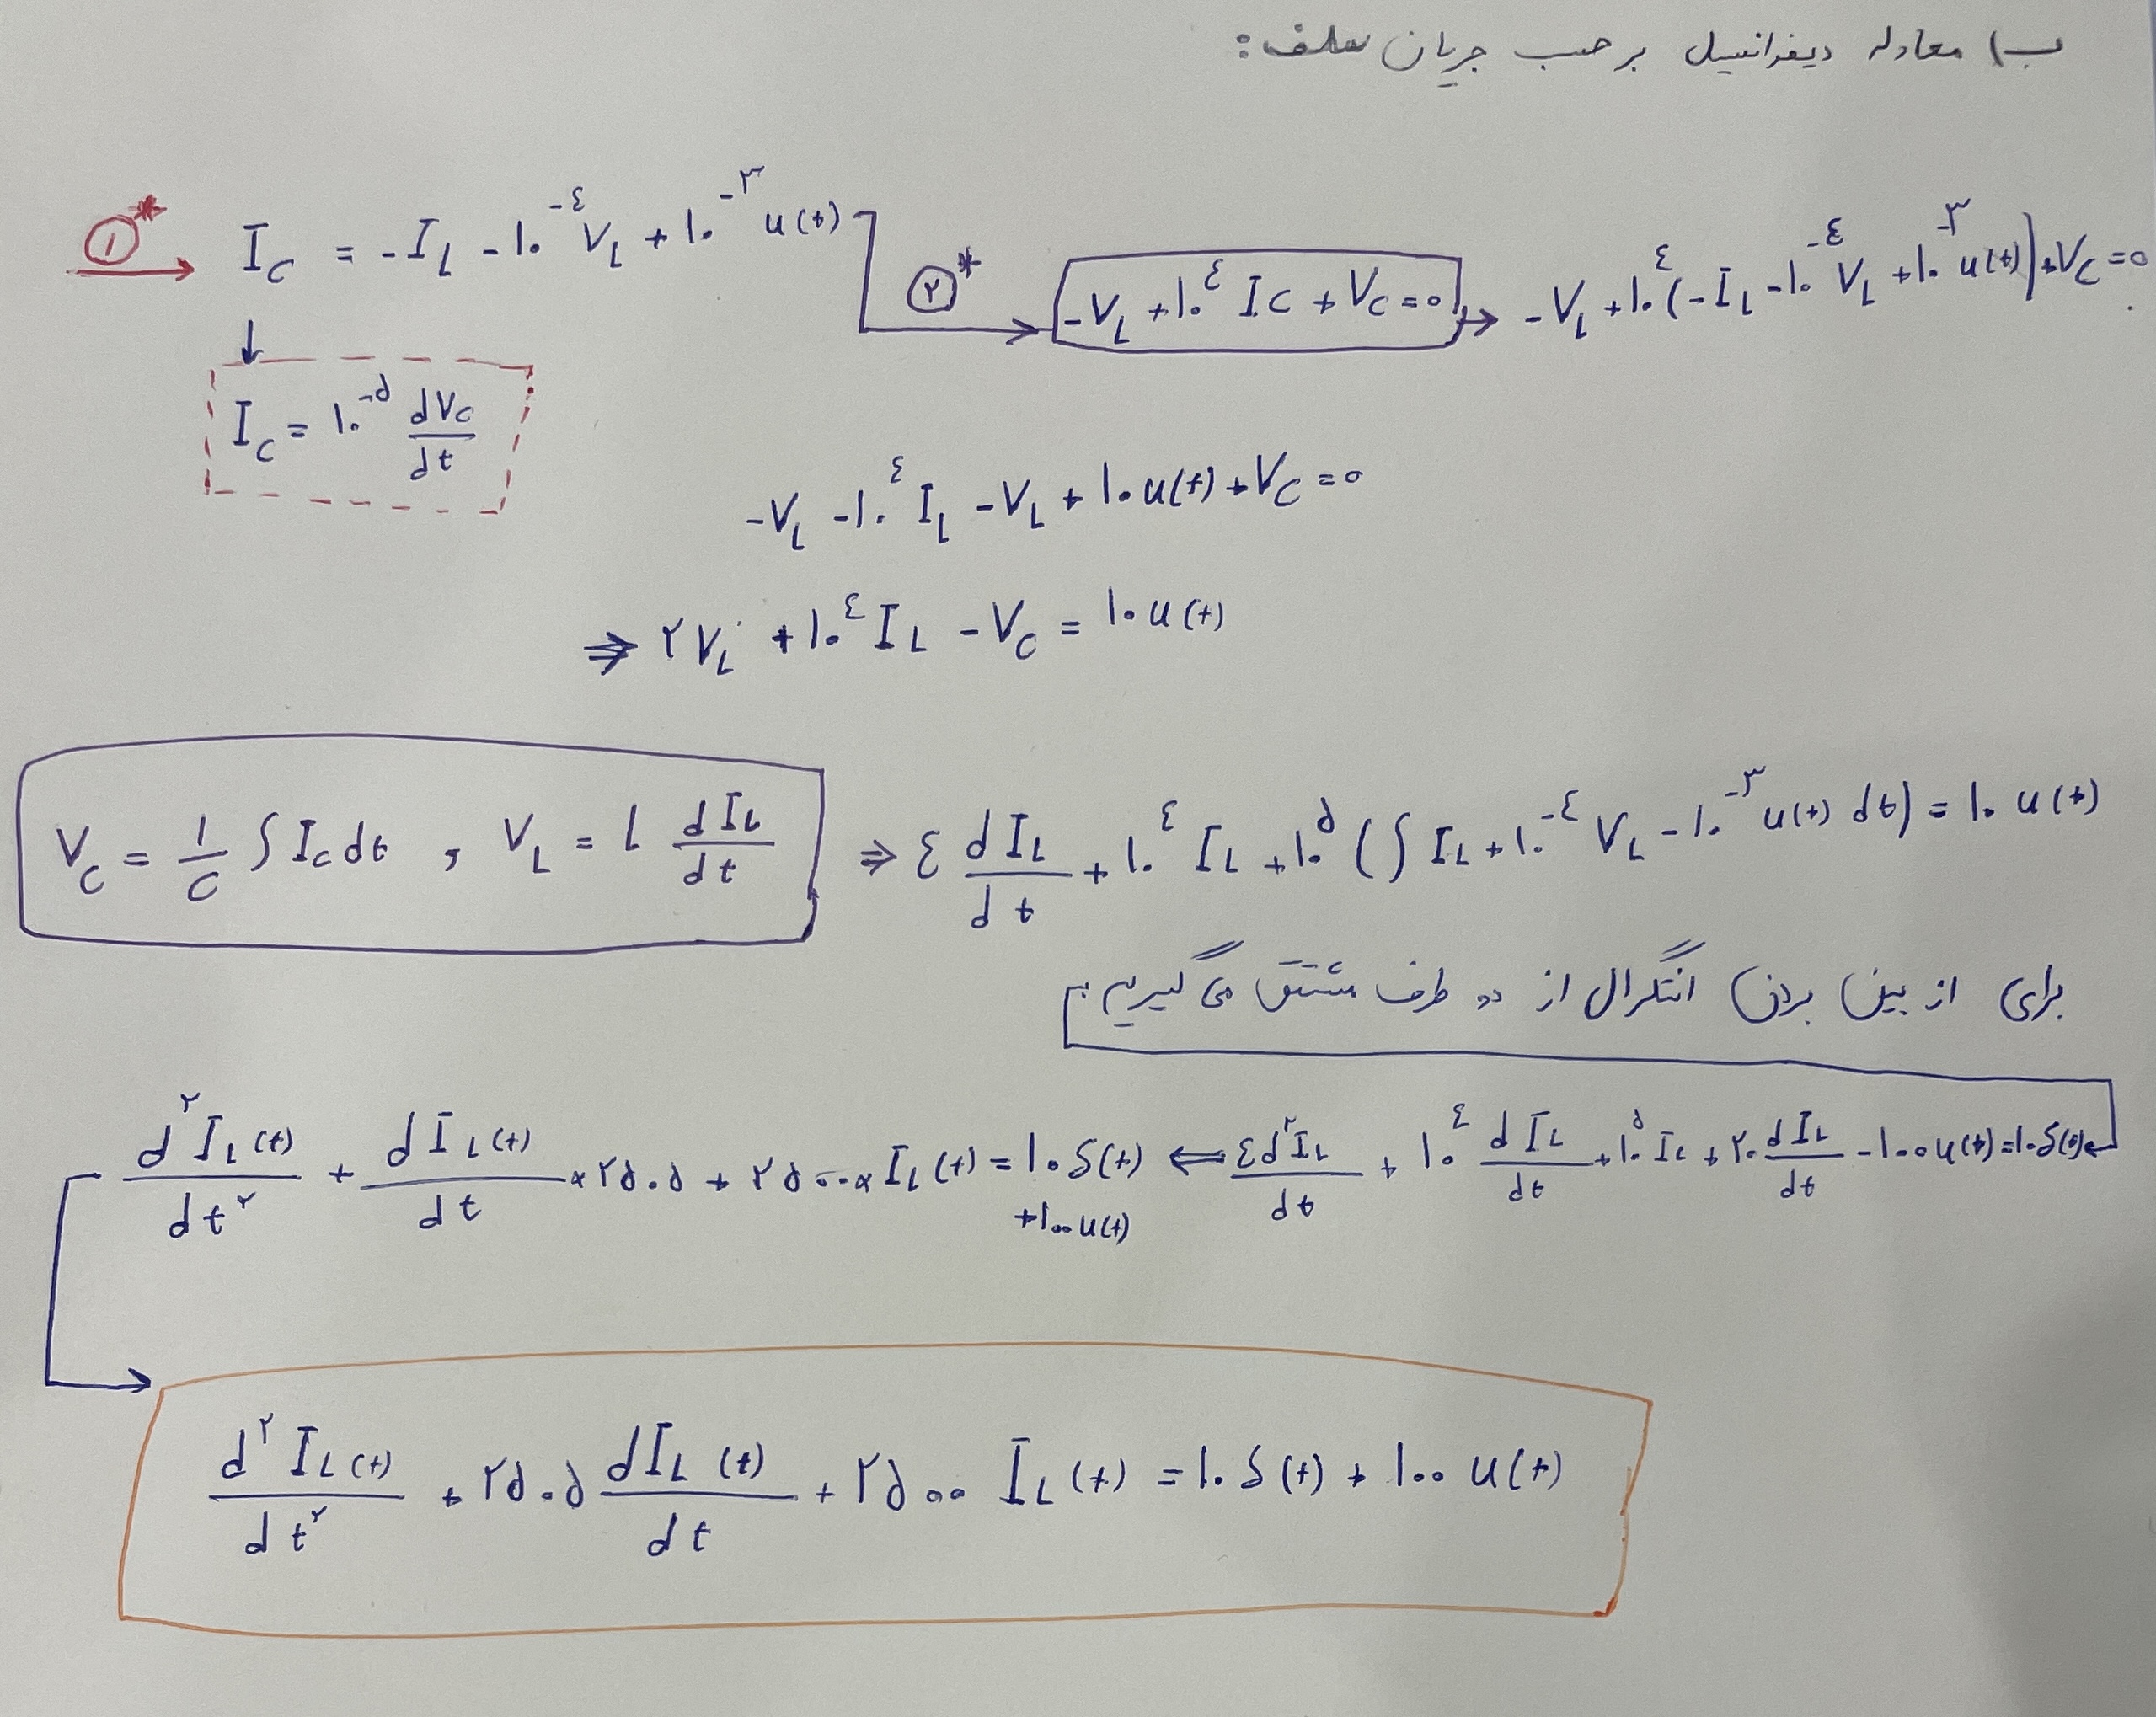 ب) معادله دیفرانسیل بر حسب جریان سلف:
①* → I_C = -I_L - ۱۰^-٤ V_L + ۱۰^-۳ u(t) ②* → -V_L + ۱۰^٤ I_C + V_C = ۰ → -V_L + ۱۰^٤ (-I_L - ۱۰^-٤ V_L + ۱۰^-۳ u(t)) + V_C = ۰
↓
I_C = ۱۰^-۵ dV_C/dt
-V_L - ۱۰^٤ I_L - V_L + ۱۰ u(t) + V_C = ۰
⇒ ۲V_L + ۱۰^٤ I_L - V_C = ۱۰ u(t)
V_C = ۱/C ∫ I_C dt , V_L = L dI_L/dt ⇒ ٤ dI_L/dt + ۱۰^٤ I_L + ۱۰^۵ (∫ I_L + ۱۰^-٤ V_L - ۱۰^-۳ u(t) dt) = ۱۰ u(t)
برای از بین بردن انتگرال از دو طرف مشتق می گیریم:
٤d^۲I_L/dt + ۱۰^٤ dI_L/dt + ۱۰^۵ I_L + ۲۰ dI_L/dt - ۱۰۰ u(t) = ۱۰ δ(t) ⇐
d^۲I_L(t)/dt^۲ + dI_L(t)/dt × ۲۵۰۵ + ۲۵۰۰۰ × I_L(t) = ۱۰ δ(t) + ۱۰۰ u(t)
d^۲I_L(t)/dt^۲ + ۲۵۰۵ dI_L(t)/dt + ۲۵۰۰ I_L(t) = ۱۰ δ(t) + ۱۰۰ u(t)